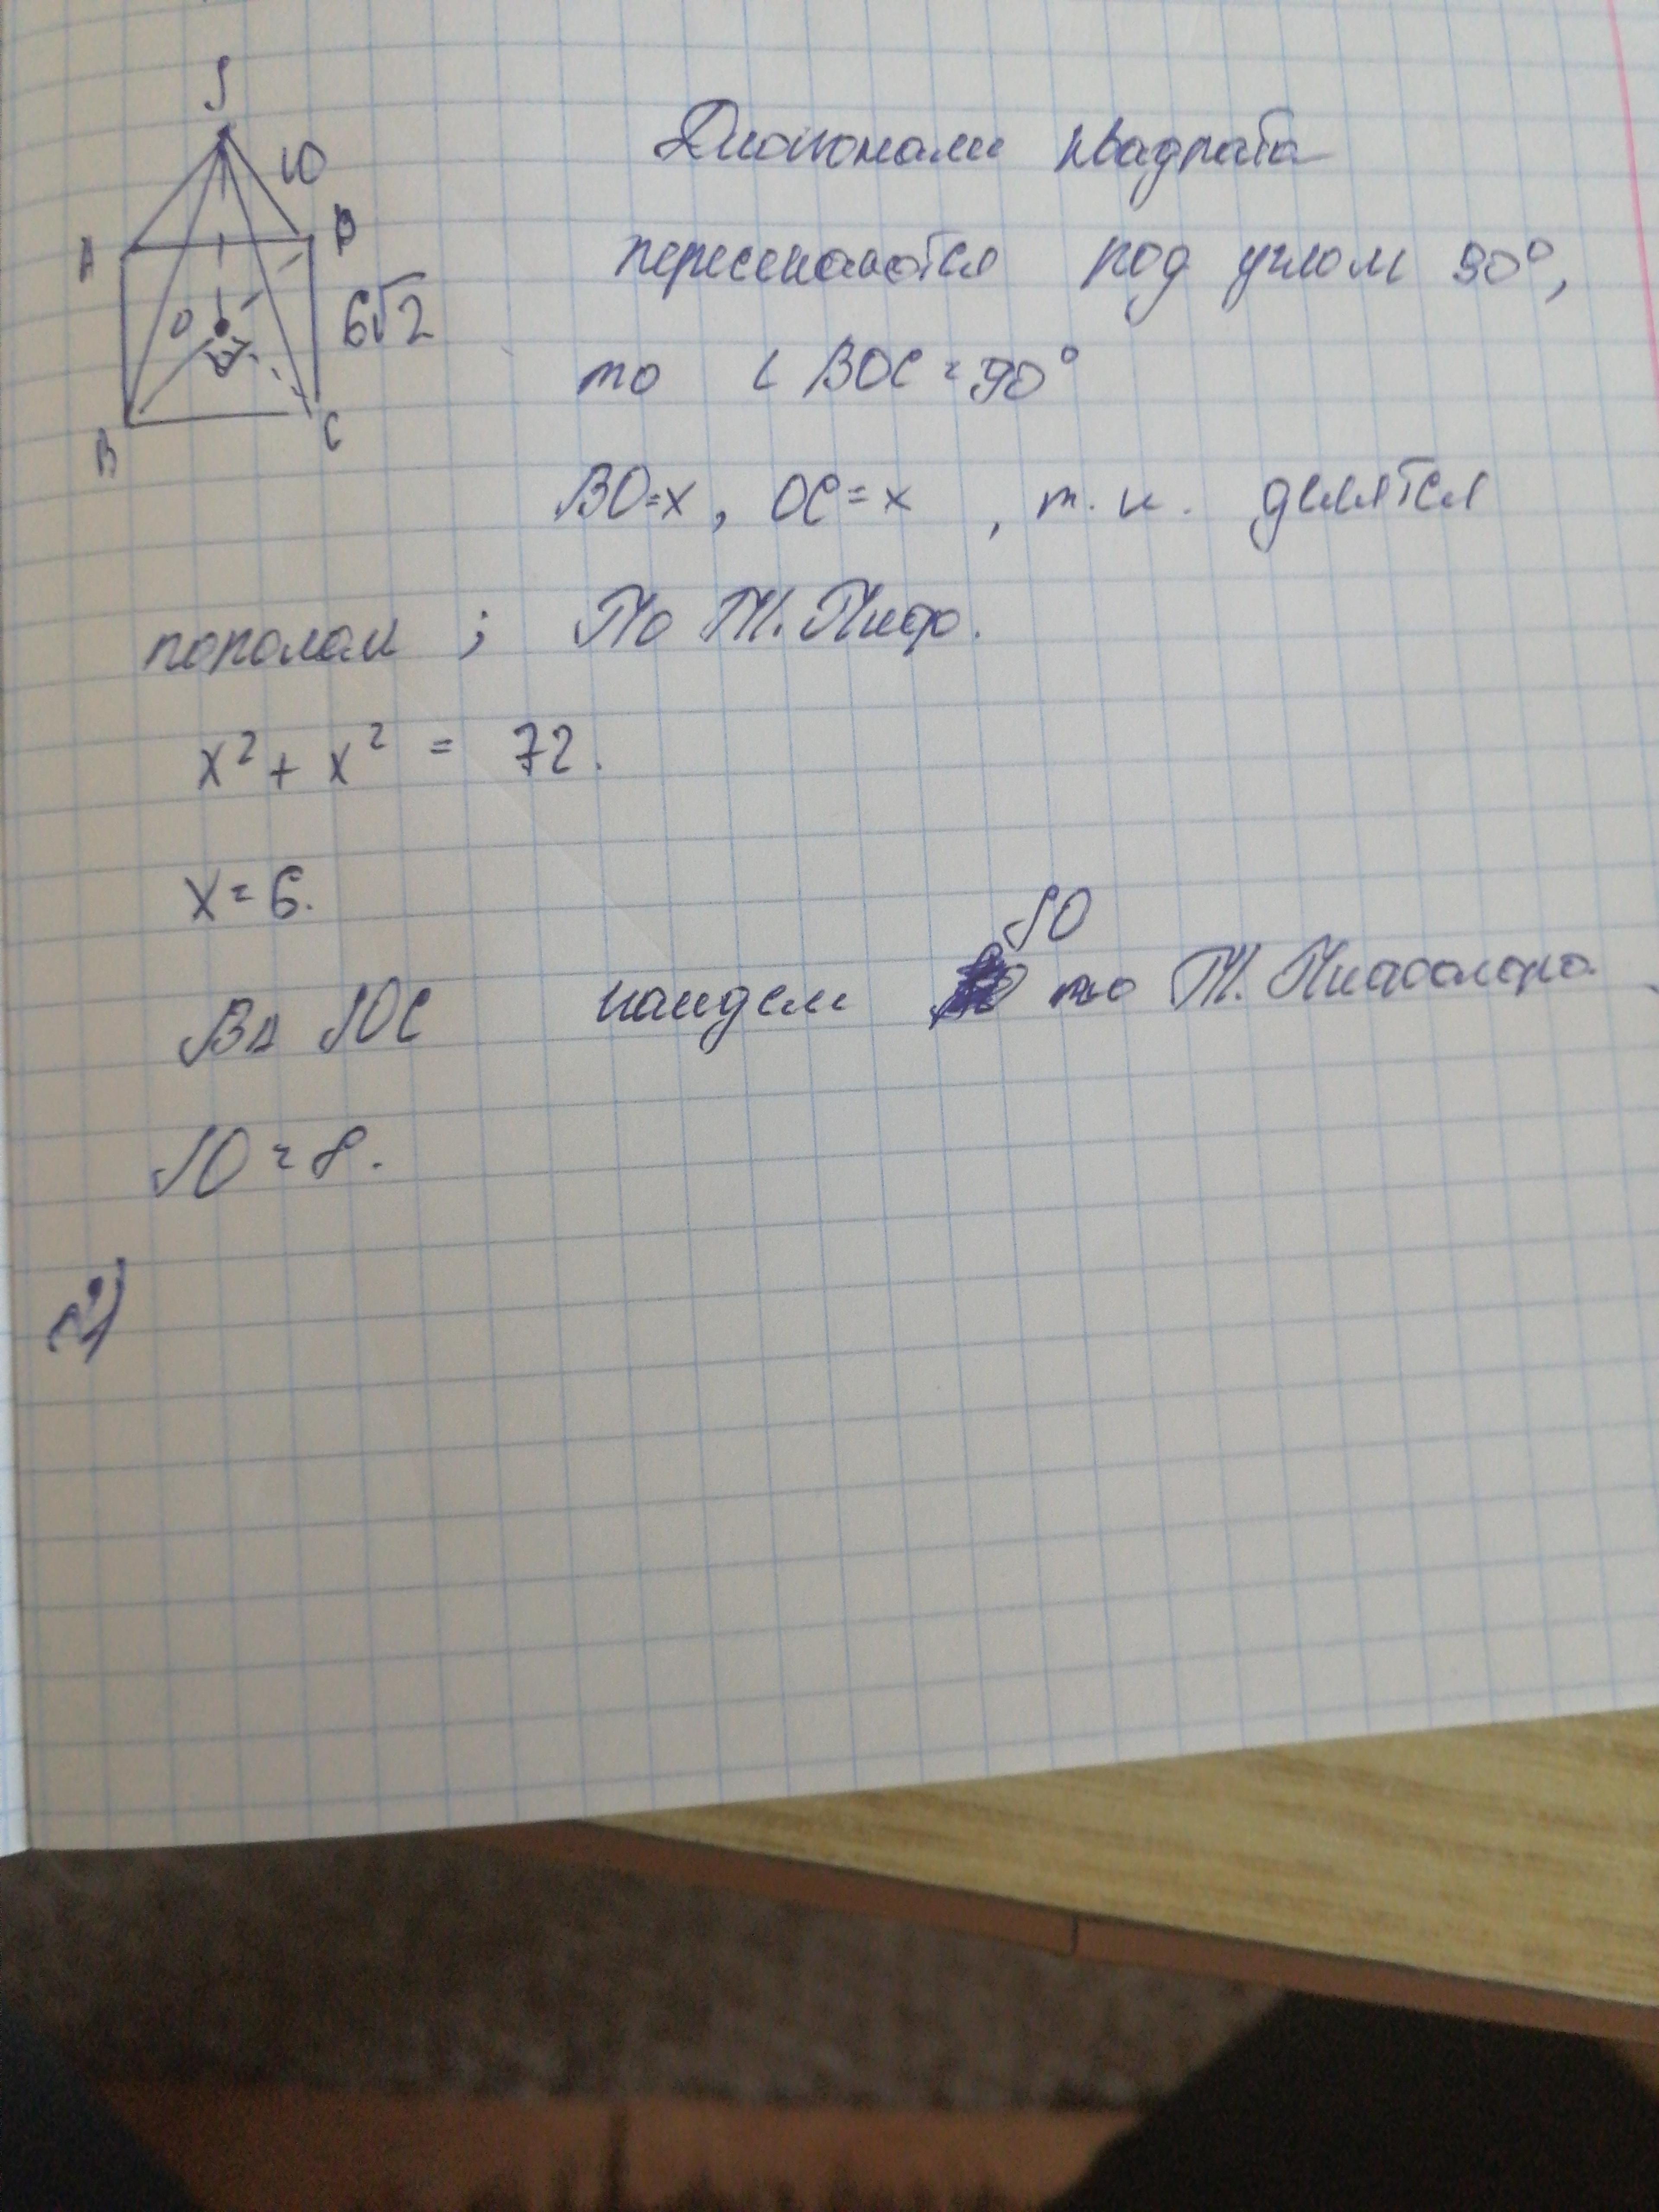 S
10
A
D
O
6√2
B
C
Диагонали квадрата
пересекаются под углом 90°,
то ∠ BOC = 90°
BO=x, OC=x , т.к. делятся
пополам ; По Т. Пиф.
x² + x² = 72.
x = 6.
В Δ SOC найдем SO по Т. Пифагора.
SO = 8.
2)